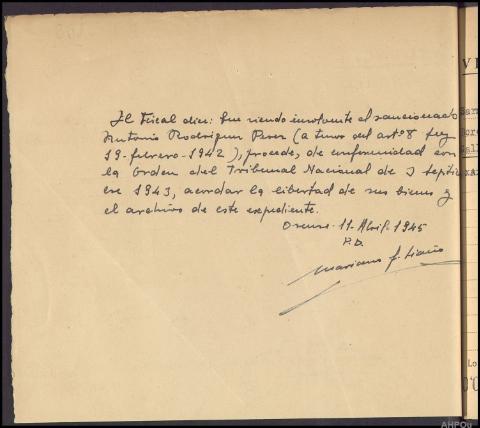 El Fiscal dice: Que siendo insolvente el sancionado
Antonio Rodriguez Perez (a tenor del artº 8 ley
19-febrero-1942), procede, de conformidad con
la Orden del Tribunal Nacional de 3 Septie
de 1943, acordar la libertad de sus bienes y
el archivo de este expediente.
Orense. 11. Abril. 1945
P.D.
Mariano F. Liaño
V I
AHPOu